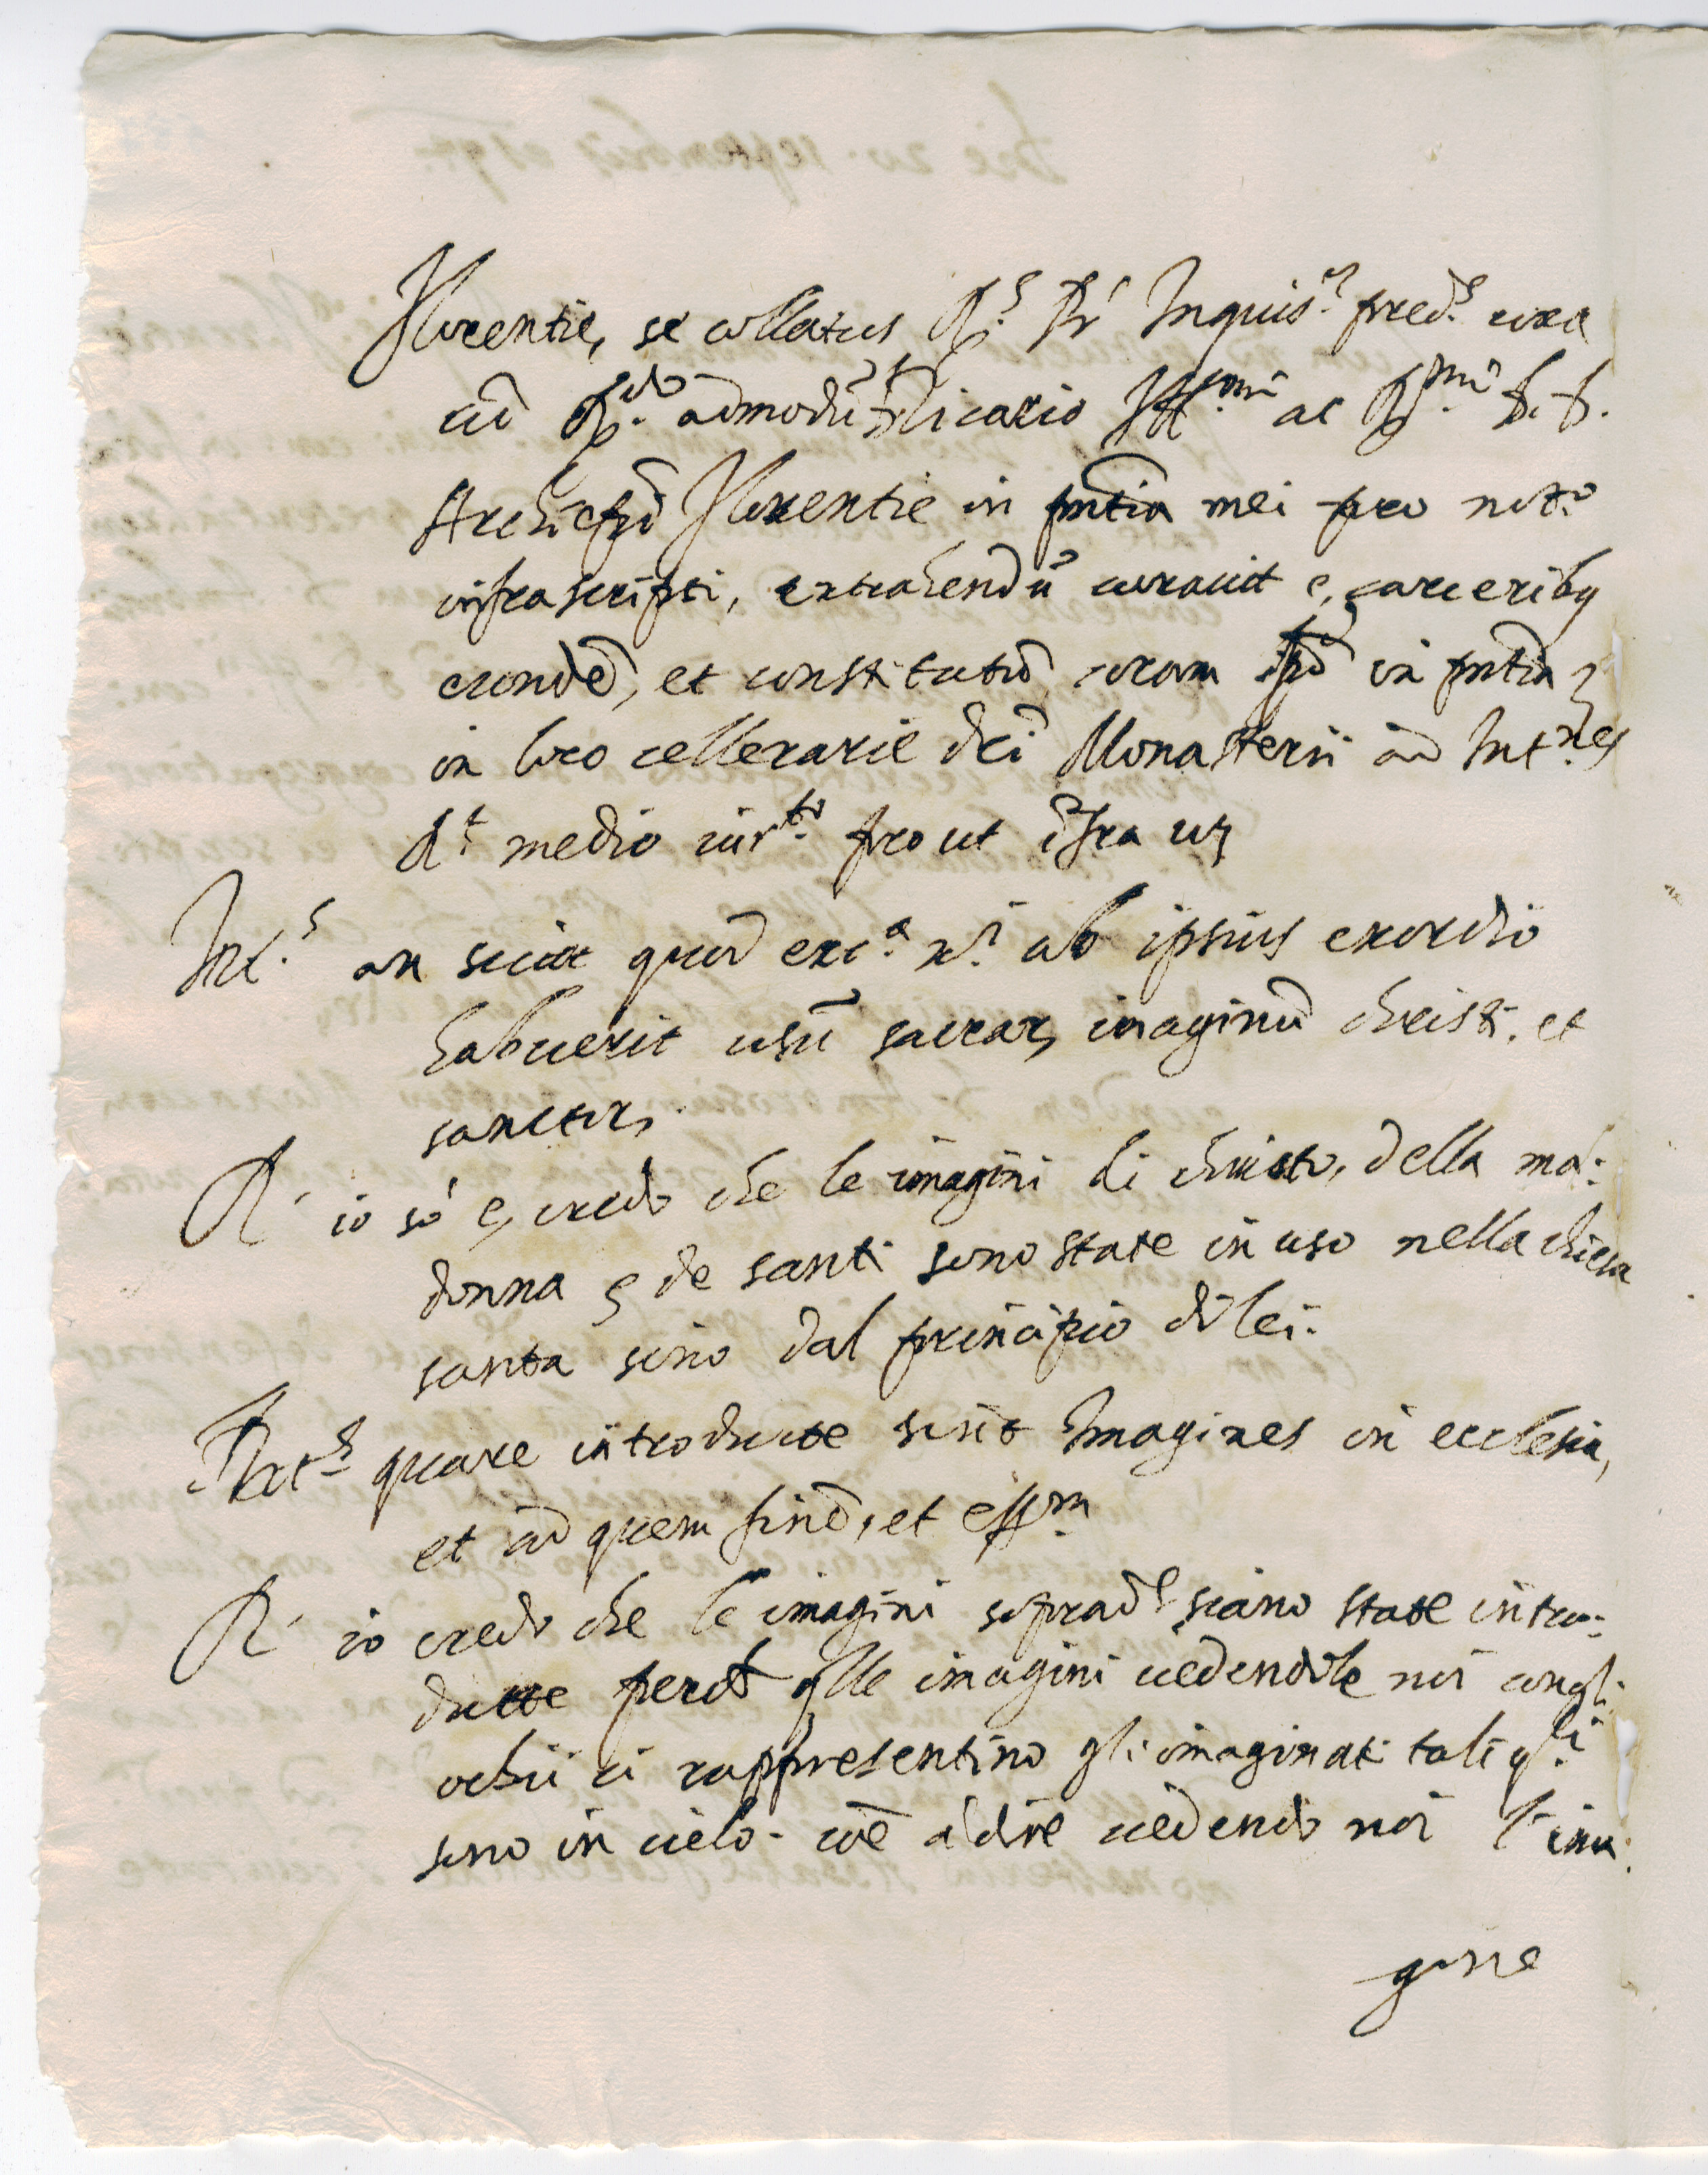 Florentie, se collatus R.s Pr Inquis.r pred.s una
cũ R.do admodũ Vicario Ill.mi ac R.mi D. D.
Archiepĩ Florentie in pñtia mei pro not.o
infrascripti, extrahendũ curavit e, carceribus
eundẽ, et constitutũ coram ipõ in pñtia
in loco cellerarie dĉi Monasterii ad Int.nes
R.t medio iur.to prout ĩfra uz
Int.s an sciat quod ecc.a x.i ab ipsius exordio
habuerit usũ sacrar, imaginũ christi. et
sanctor,
R. io so e, credo che le imagini di christo, della ma:
donna e de santi sono state in uso nella chiesa
santa sino dal principio di lei.
Int.s quare introducte sint Imagines in ecclesia,
et ad quem finẽ, et eff.m
R. io credo che le imagini soprad.e siano state intro:
dutte perch qlle imagini vedendole noi congl:
ochii ci rappresentino gli imaginati tali q.li
sono in cielo. cõe a dire vedendo noi l'ima:
gine